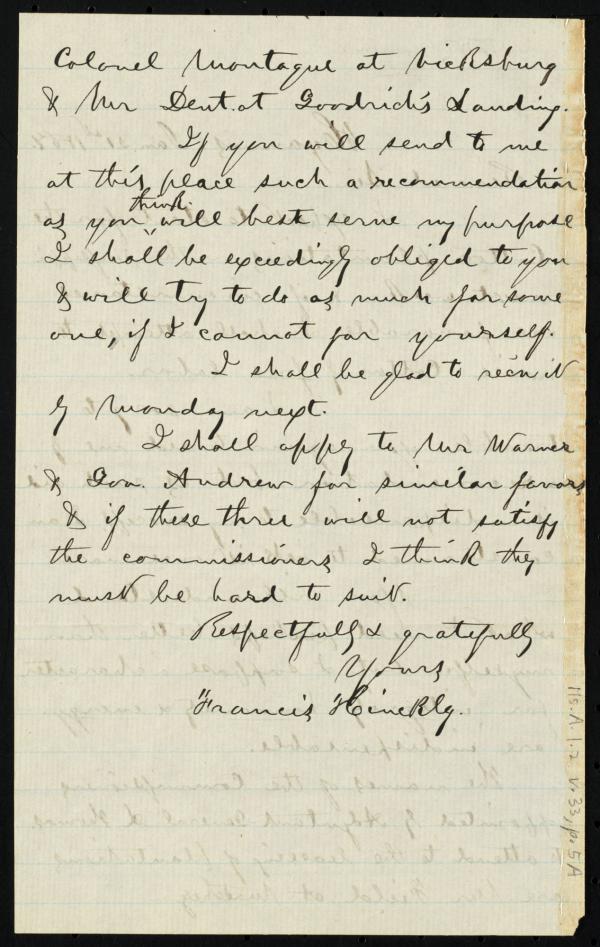 Colonel Montague at Vicksburg
& Mr Dent. at Goodrich's Landing.
If you will send to me
at this place such a recommendation
as you think will best serve my purpose
I shall be exceedingly obliged to you
& will try to do as much for some
one, if I cannot for yourself.
I shall be glad to it
by Monday next.
I shall apply to Mr Warner
& Gov. Andrew for similar favors
& if these three will not satisfy
the commissioners I think they
must be hard to suit.
Respectfully & gratefully
Yours
Francis Hinckley.
Ms. A. 1. 2 v. 33, p. 5A